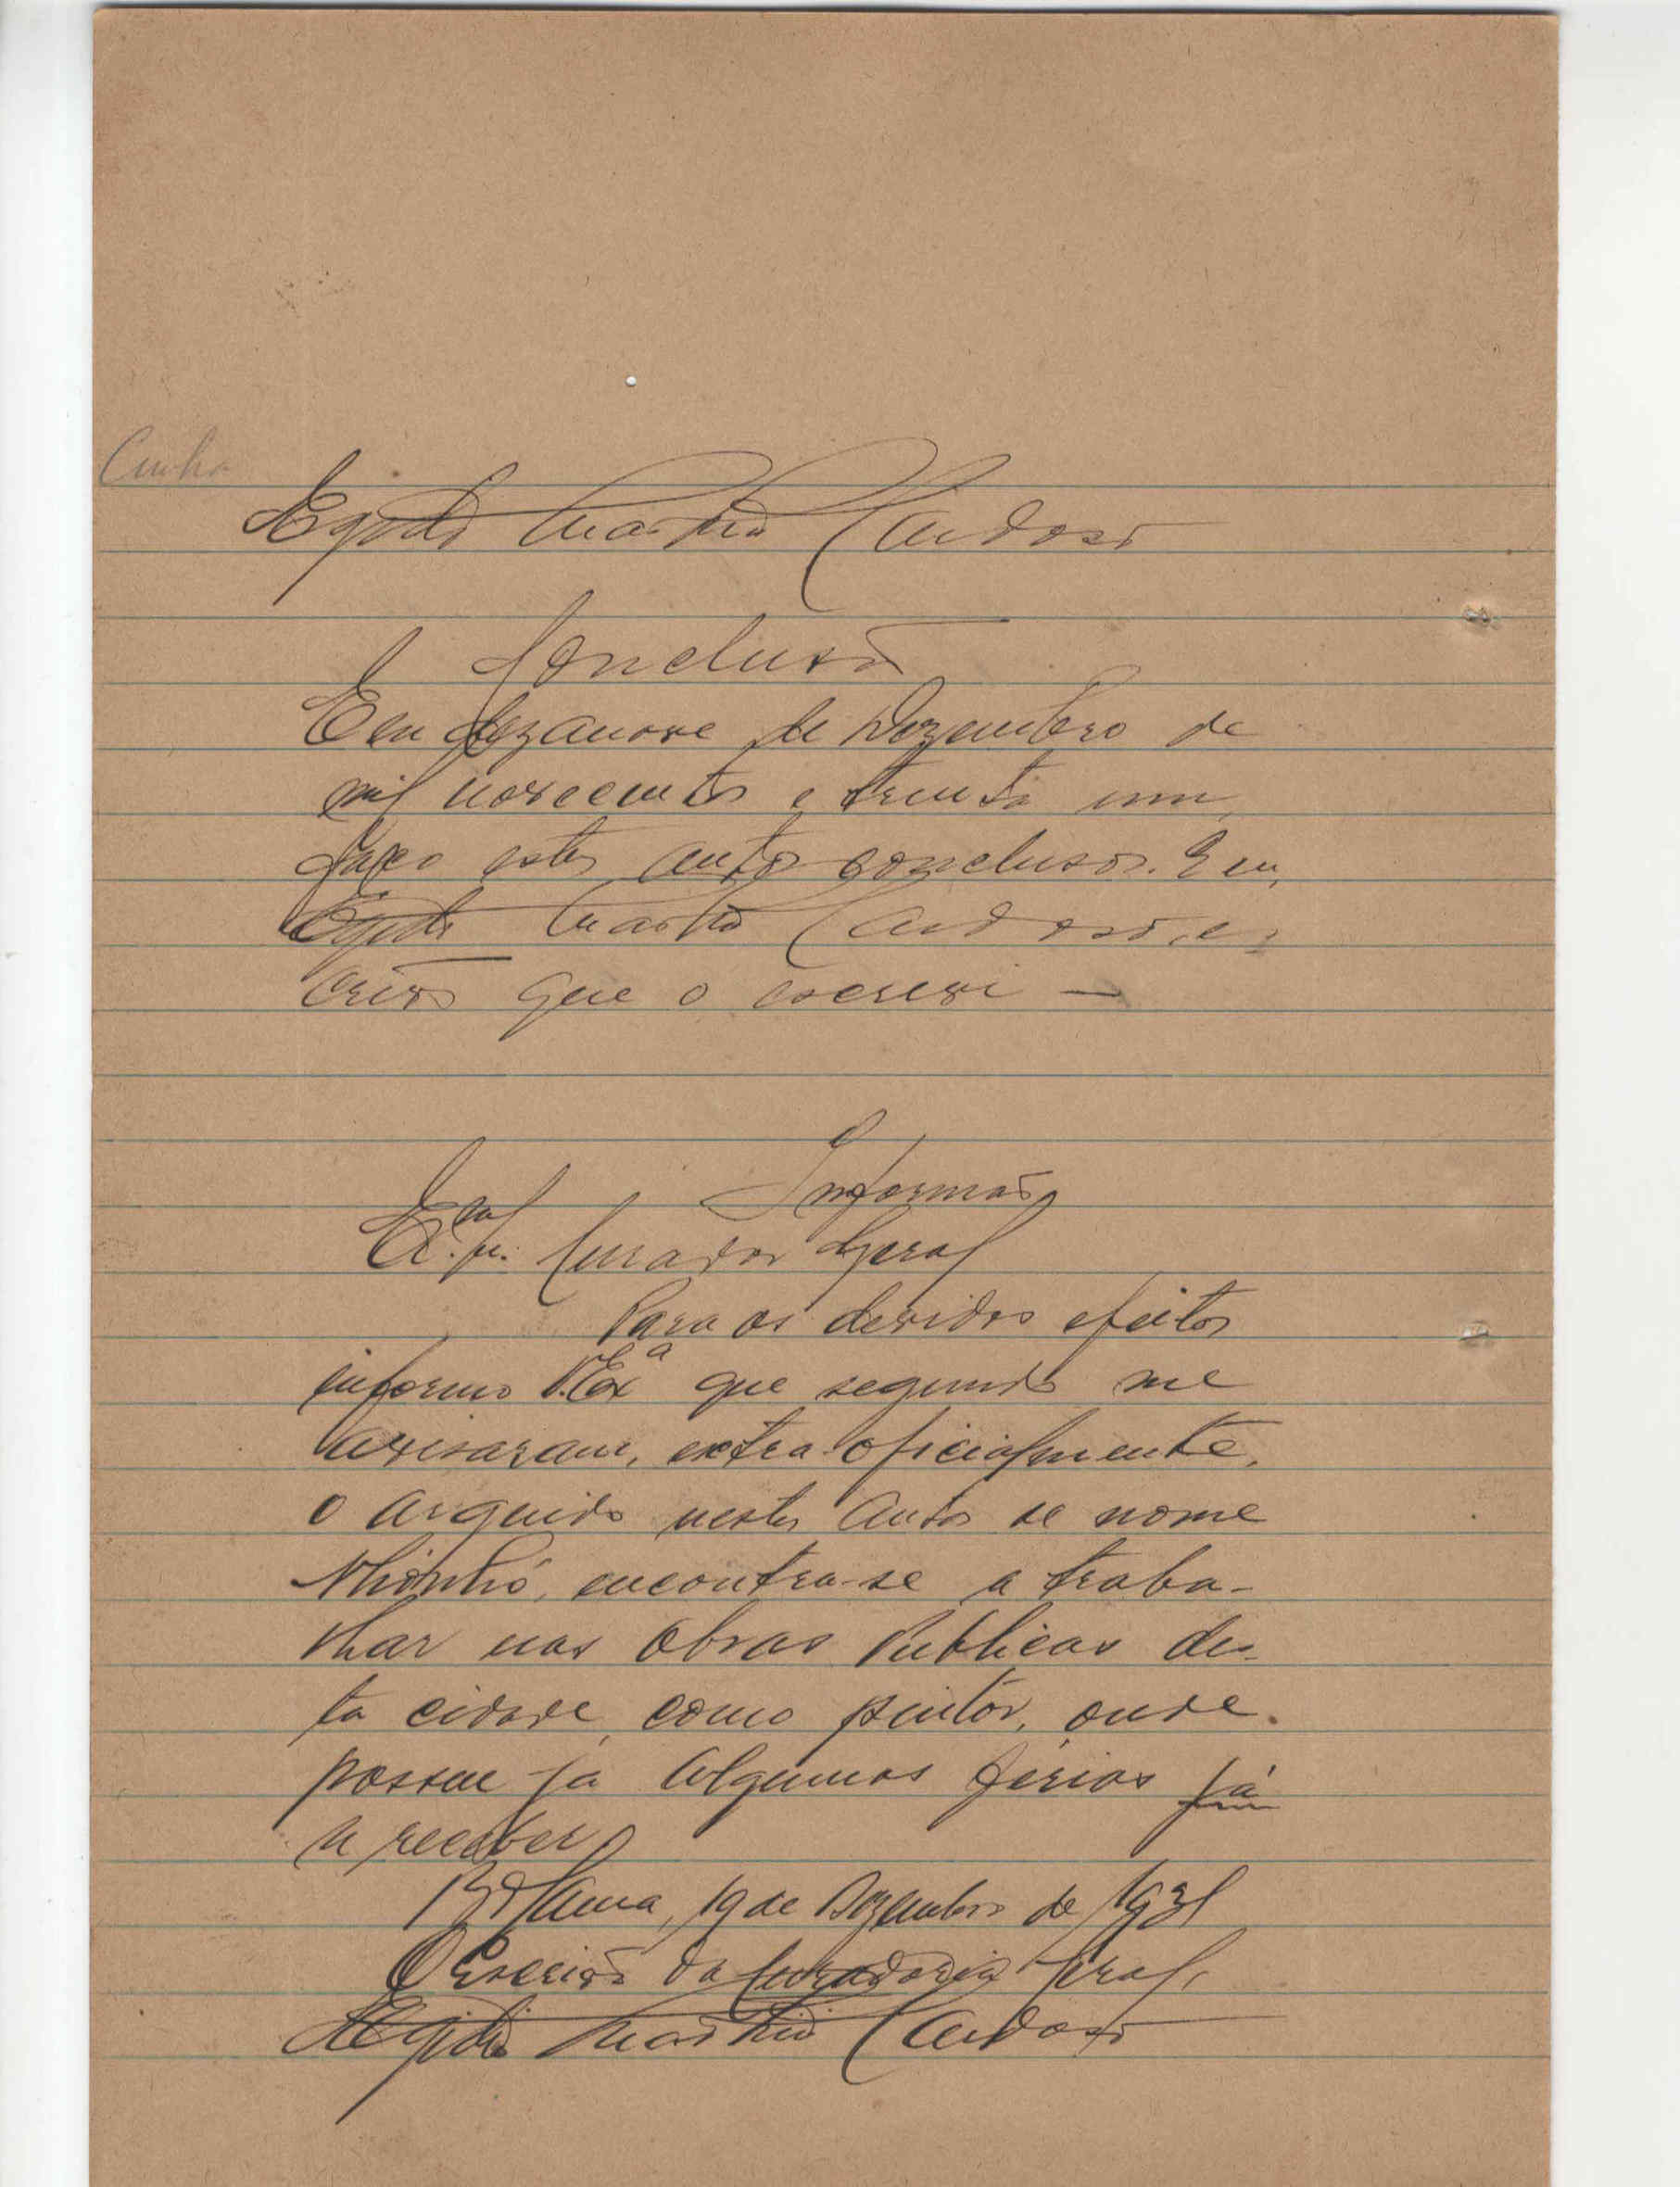 Cunha
Egidio Martins Cardoso
Conclusão
Em dezanove de Dezembro de
mil novecentos e trinta um,
faço estes autos conclusos. E eu,
Egidio Martins Cardoso, es
crivão que o escrevi —
Informação
Ex.mo Sr. Curador Geral
Para os devidos efeitos
informo V. Exª que segundo me
avisaram, extra-oficialmente,
o arguido nestes autos de nome
encontra-se a traba-
lhar nas Obras Publicas des-
ta cidade, como pintôr, onde
possue ja algumas férias já
a receber
Bolama, 19 de Dezembro de 1931
O Escrivão da Curadoria Geral,
Egidio Martins Cardoso